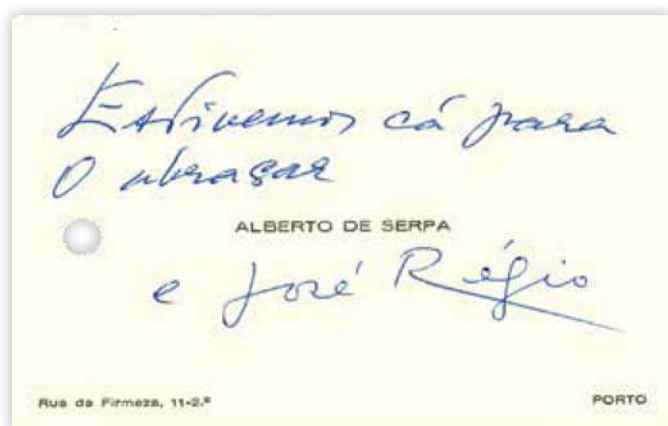 Estivemos cá para
o abraçar
ALBERTO DE SERPA
e José Régio
Rua da Firmeza, 11-2.º
PORTO